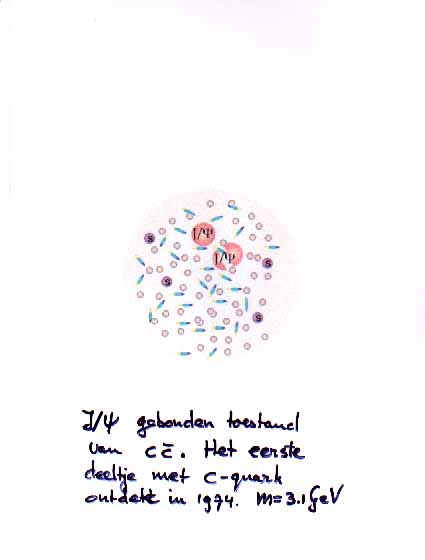 J/Ψ
J/Ψ
S
S
S
S
J/Ψ gebonden toestand
van c c̄. Het eerste
deeltje met c-quark
ontdekt in 1974. m=3.1 GeV